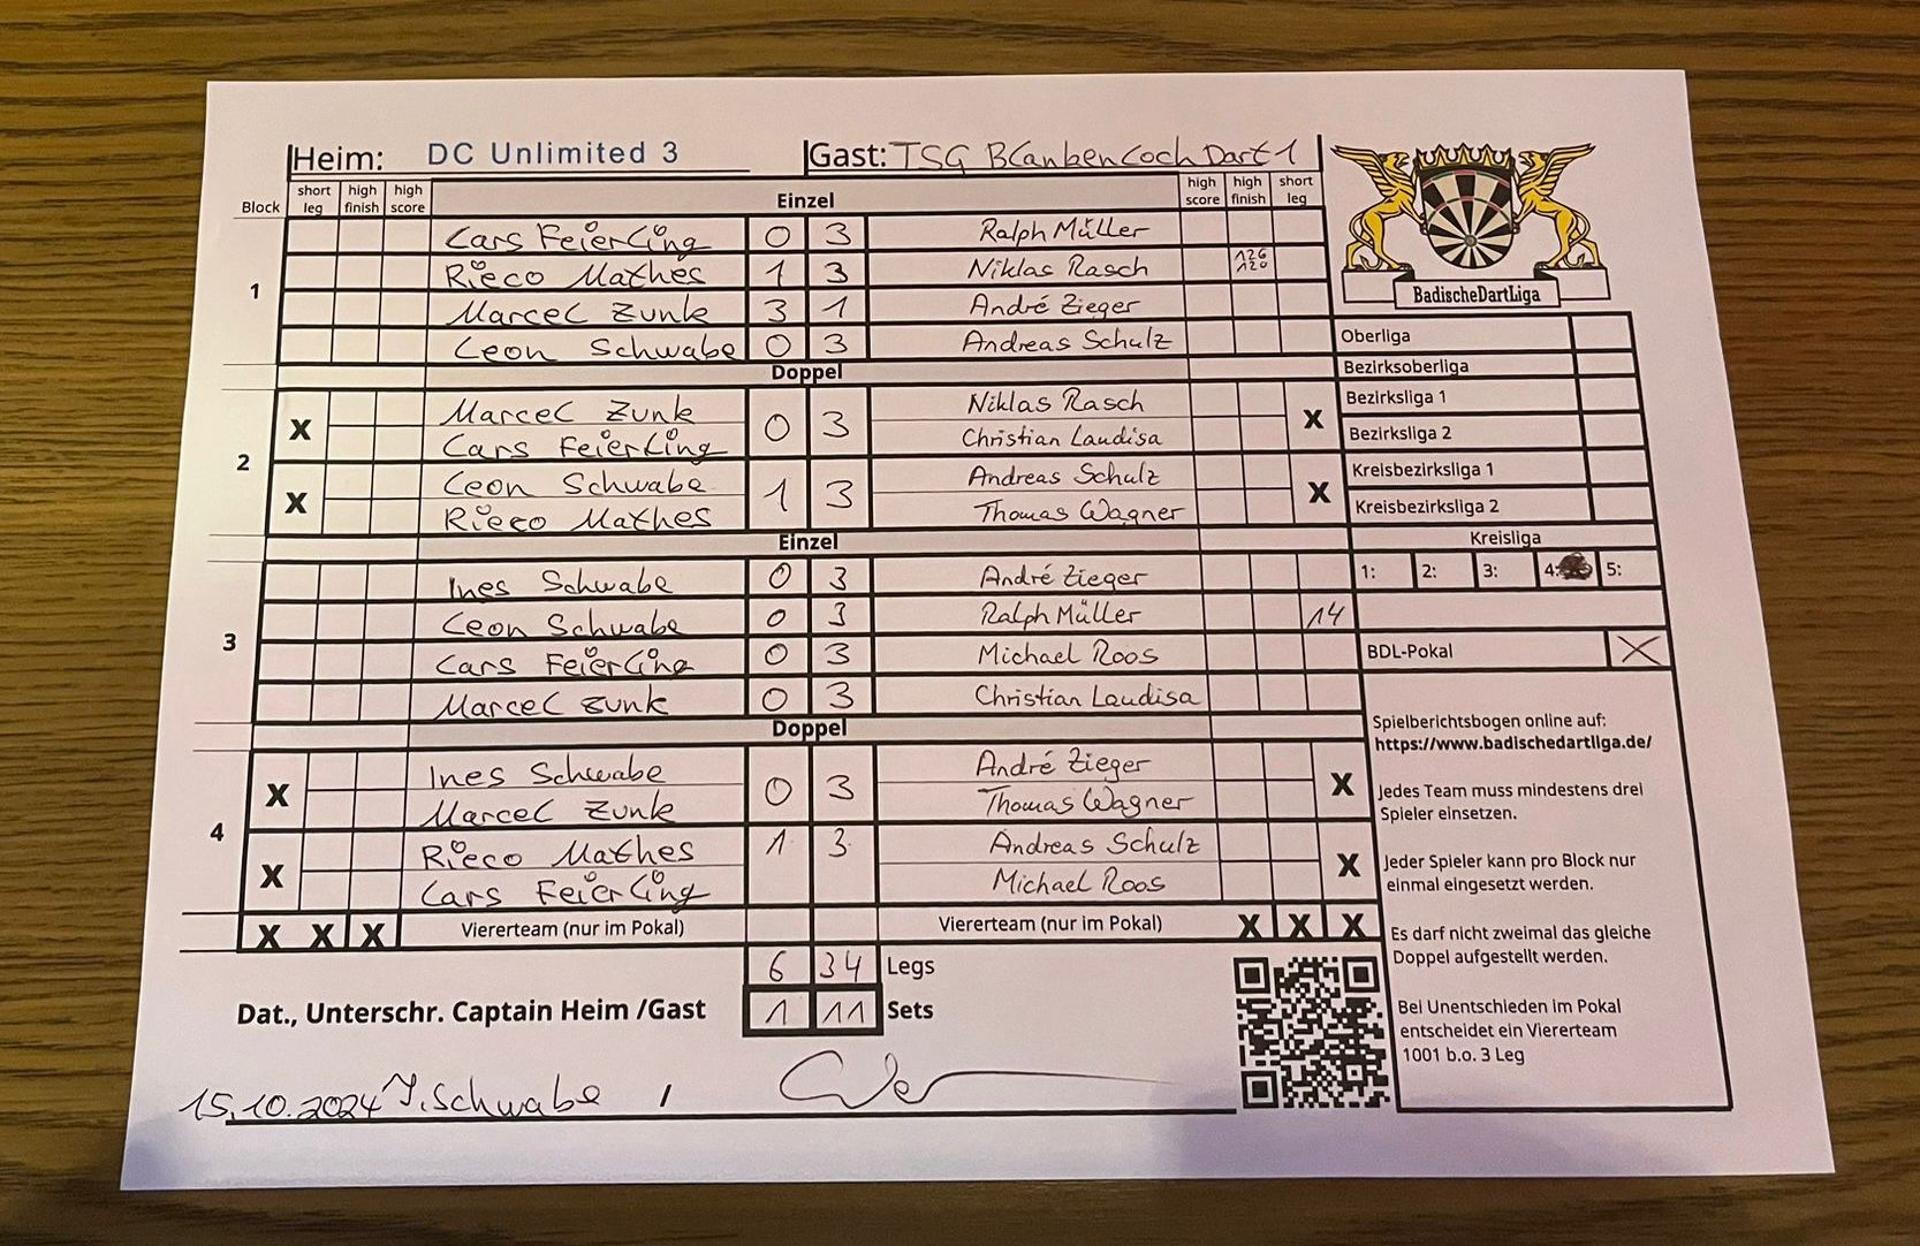 Heim: DC Unlimited 3 Gast: TSG Blankenloch Dart 1
Block short leg high finish high score Einzel high score high finish short leg
1
Lars Feierling 0 3 Ralph Müller
Rico Mathes 1 3 Niklas Rasch 126 120
Marcel Zunk 3 1 André Zieger
Leon Schwabe 0 3 Andreas Schulz
Doppel
2
X Marcel Zunk 0 3 Niklas Rasch X
Lars Feierling Christian Laudisa
X Leon Schwabe 1 3 Andreas Schulz X
Rico Mathes Thomas Wagner
Einzel
3
Ines Schwabe 0 3 André Zieger
Leon Schwabe 0 3 Ralph Müller 14
Lars Feierling 0 3 Michael Roos
Marcel Zunk 0 3 Christian Laudisa
Doppel
4
X Ines Schwabe 0 3 André Zieger X
Marcel Zunk Thomas Wagner
X Rico Mathes 1 3 Andreas Schulz X
Lars Feierling Michael Roos
X X X Viererteam (nur im Pokal) Viererteam (nur im Pokal) X X X
6 34 Legs
Dat., Unterschr. Captain Heim /Gast 1 11 Sets
15.10.2024 I. Schwabe /
BadischeDartLiga
Oberliga
Bezirksoberliga
Bezirksliga 1
Bezirksliga 2
Kreisbezirksliga 1
Kreisbezirksliga 2
Kreisliga
1: 2: 3: 4: 5:
BDL-Pokal X
Spielberichtsbogen online auf:
https://www.badischedartliga.de/
Jedes Team muss mindestens drei
Spieler einsetzen.
Jeder Spieler kann pro Block nur
einmal eingesetzt werden.
Es darf nicht zweimal das gleiche
Doppel aufgestellt werden.
Bei Unentschieden im Pokal
entscheidet ein Viererteam
1001 b.o. 3 Leg